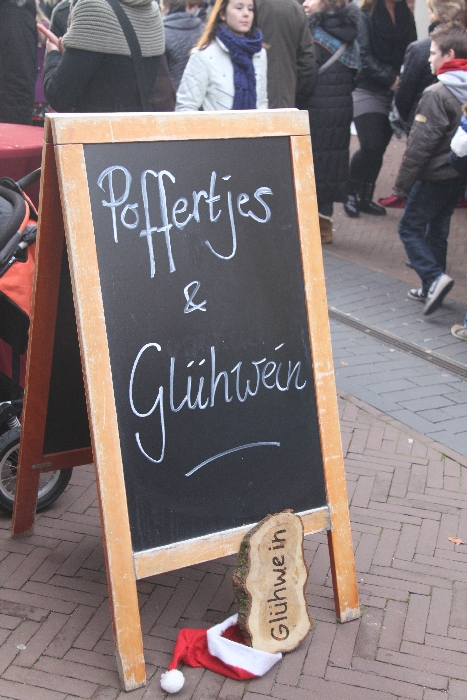 Poffertjes
&
Glühwein
Glühwein